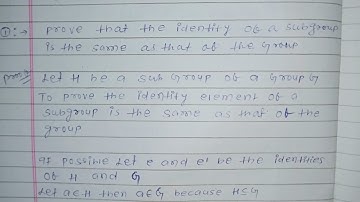 ①:→ prove that the identity of a subgroup
is the same as that of the Group
proof Let H be a sub Group of a Group G
To prove the identity element of a
subgroup is the same as that of the
group
If possible Let e and e' be the identities
of H and G
Let a∈H then a∈G because H≤G